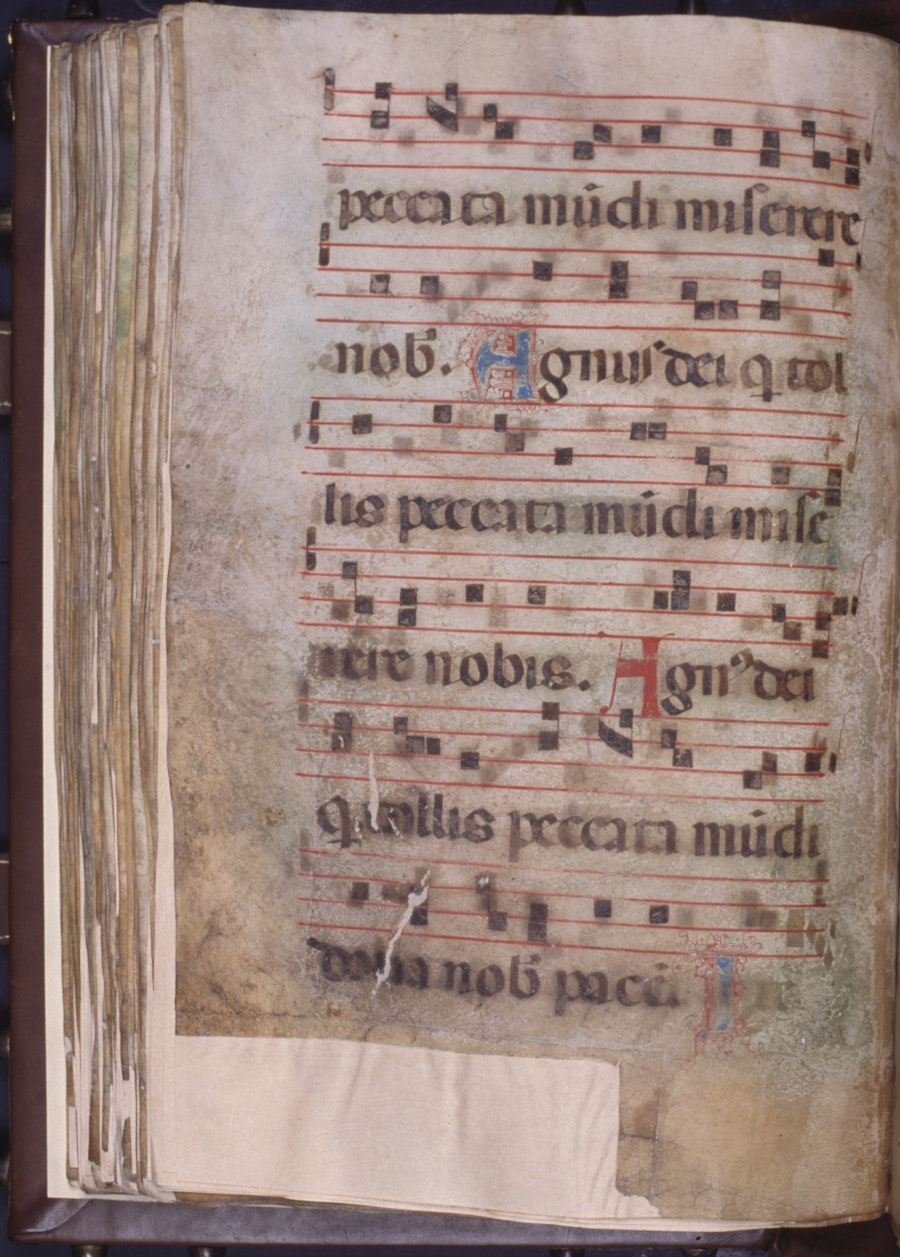 peccata mūdi miserere
nob̄. Agnus dei q tol
lis peccata mūdi mise
rere nobis. Agnꝰ dei
q tollis peccata mūdi
dona nob̄ pacē. I